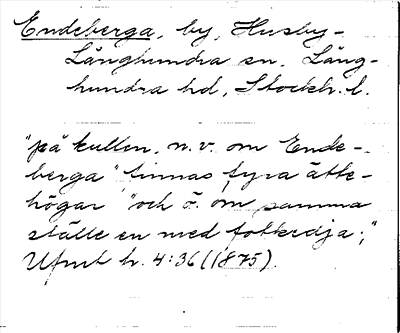 Endeberga, by, Husby-
Långhundra sn. Lång-
hundra hd, Stockh. l.
"på kullen, n.v. om Ende-
berga" finnas fyra ätte-
högar "och ö. om samma
ställe en med fotkedja;"
Ufmt h. 4:36 (1875).